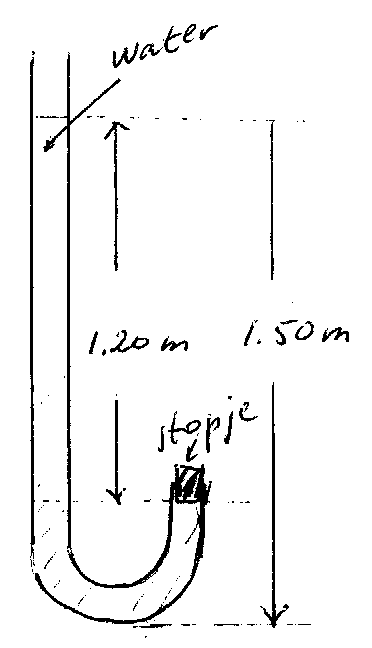 water
1.20 m
1.50 m
stopje